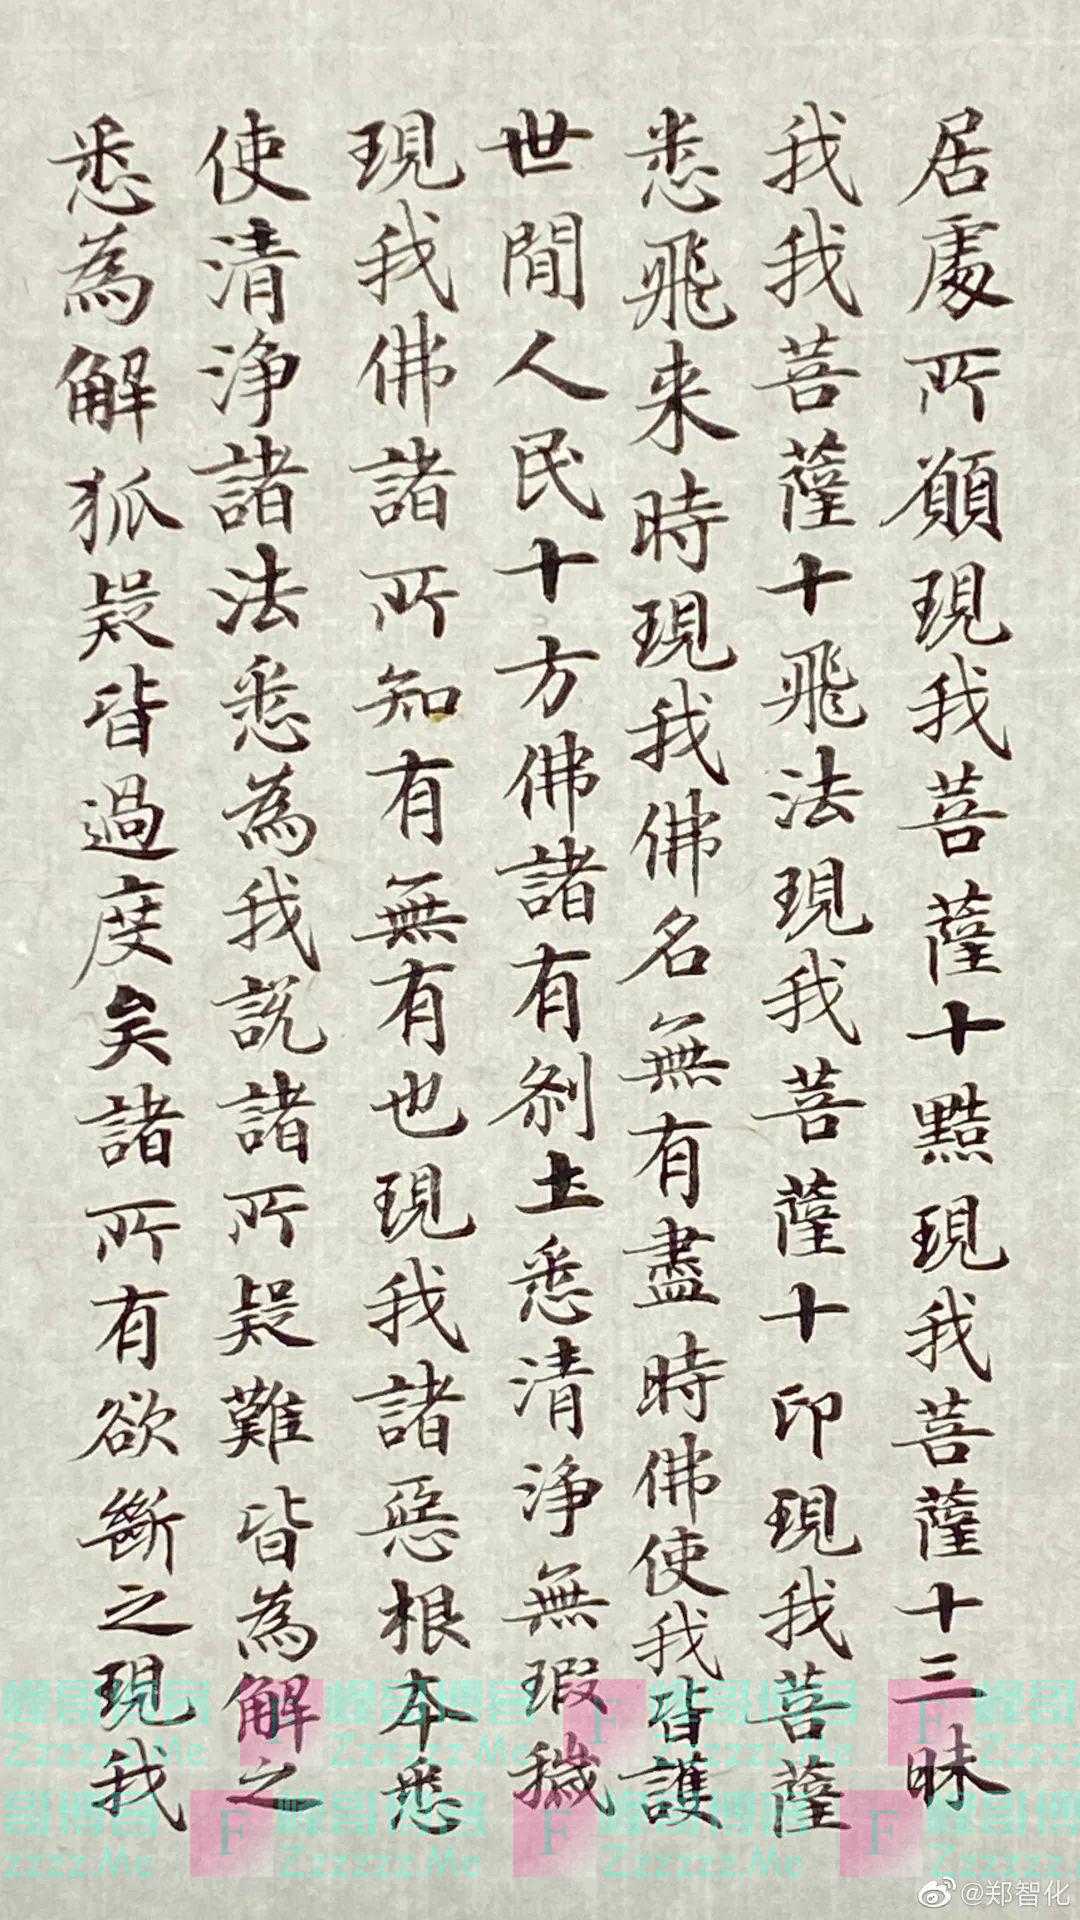 居處所願現我菩薩十點現我菩薩十三昧
我我菩薩十飛法現我菩薩十印現我菩薩
悉飛来時現我佛名無有盡時佛使我皆護
世間人民十方佛諸有剎土悉清淨無瑕穢
現我佛諸所知有無有也現我諸惡根本悉
使清淨諸法悉為我説諸所疑難皆為解之
悉為解狐疑皆過度矣諸所有欲斷之現我
Zzzzzz.Me
F
@郑智化